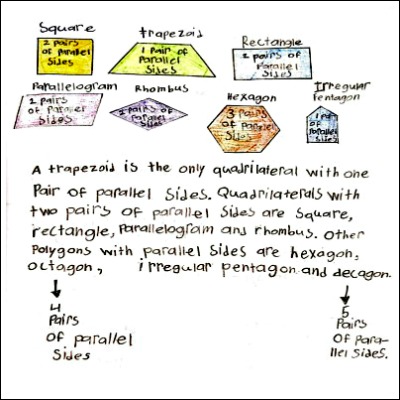 Square
trapezoid
Rectangle
2 pairs
of parallel
Sides
1 pair of
Parallel
Sides
2 pairs of
Parallel
Sides
Parallelogram
Rhombus
Hexagon
Irregular
Pentagon
2 pairs
of Parallel
Sides
2 pairs of
Parallel
Sides
3 pairs
of Parallel
Sides
A trapezoid is the only quadrilateral with one
Pair of parallel sides. Quadrilaterals with
two pairs of parallel sides are square,
rectangle, parallelogram and rhombus. Other
Polygons with parallel sides are hexagon,
octagon, irregular pentagon and decagon.
4
Pairs
of parallel
Sides
5
Pairs
of para-
llel sides.